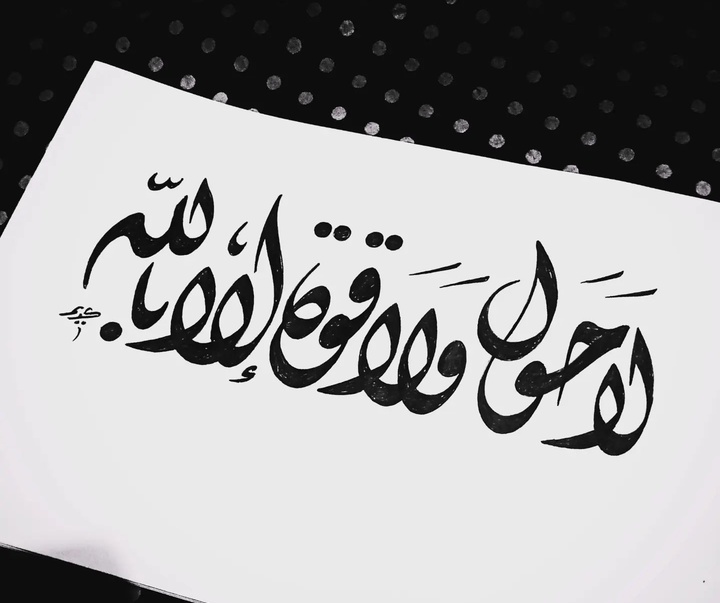 لا حول ولا قوة إلا بالله
كريم